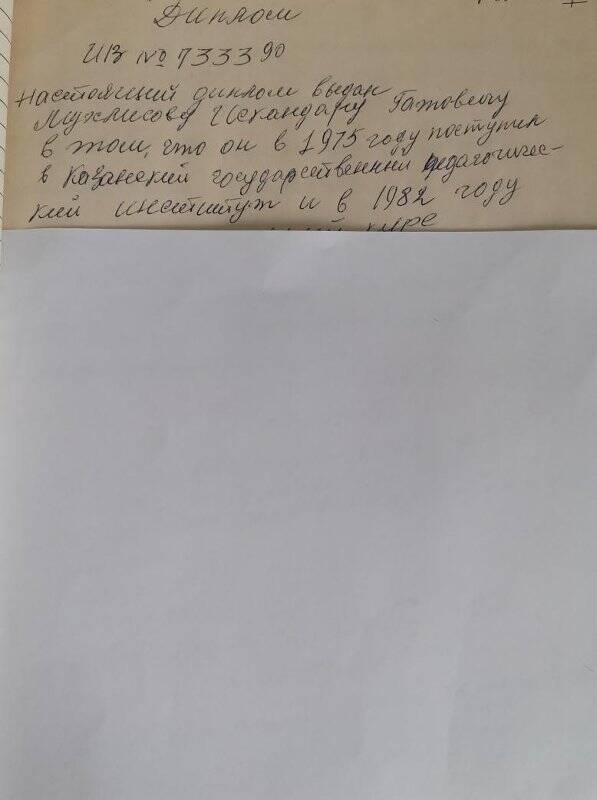 Диплом
ИВ № 733390
Настоящий диплом выдан
Искандару
в том, что он в 1975 году поступил
в Казанский государственный педагогичес-
кий институт и в 1982 году
курс